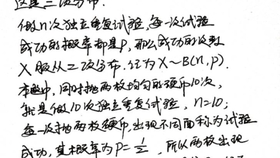 这是二项分布.
做n次独立重复试验,每一次试验
成功的概率都是p,那么成功的次数
X服从二项分布,记为X~B(n,p).
本题中,同时抛两枚均匀的硬币10次,
就是做10次独立重复试验,n=10;
每一次抛两枚硬币,出现不同面称为试验
成功,其概率为P=1/2,所以两枚出现